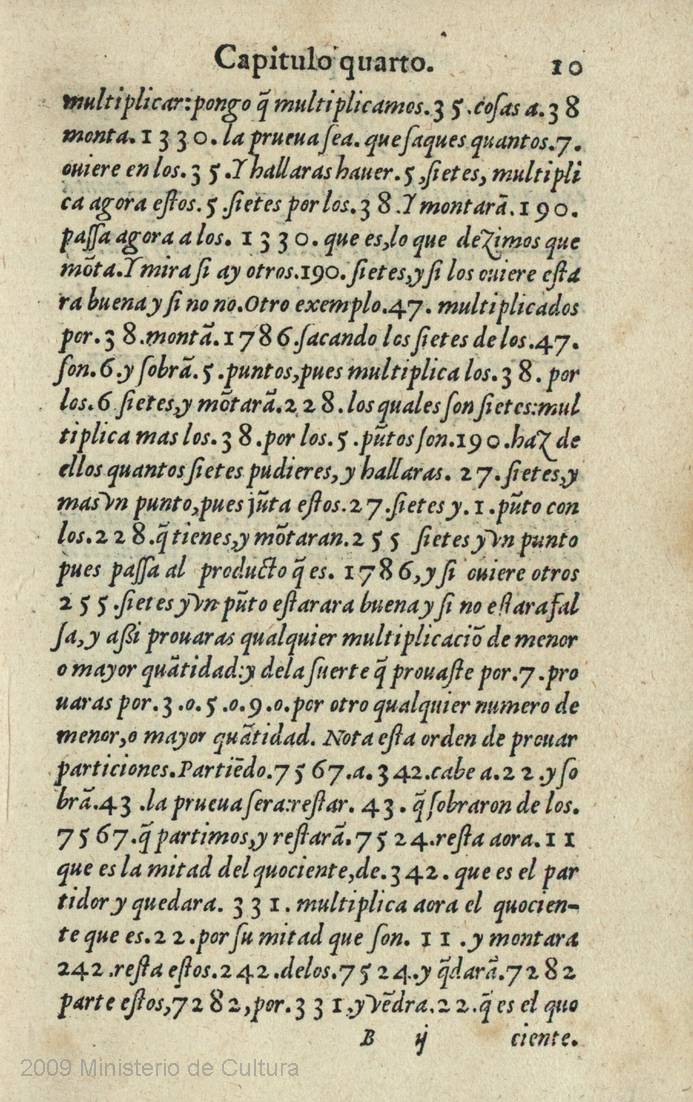 Capitulo quarto. 10
multiplicar:pongo q̃ multiplicamos.35.coſas a.38
monta.1330.la prueua ſea.que ſaques quantos.7.
ouiere en los.35.Y hallaras hauer.5,ſietes, multipli
ca agora eſtos.5.ſietes por los.38.Y montarã.190.
paſſa agora a los. 1330. que es,lo que dezimos que
mõta.Y mira ſi ay otros.190.ſietes,y ſi los ouiere eſta
ra buena y ſi no no.Otro exemplo.47. multiplicados
por.38.montã.1786.ſacando los ſietes de los.47.
ſon.6.y ſobrã.5.puntos,pues multiplica los.38. por
los.6 ſietes,y mõtarã.228.los quales ſon ſietes:mul
tiplica mas los.38.por los.5.pũtos ſon.190.haz de
ellos quantos ſietes pudieres, y hallaras. 27.ſietes,y
mas vn punto,pues jũta eſtos.27.ſietes y.1.pũto con
los.228.q̃ tienes,y mõtaran.255 ſietes y vn punto
pues paſſa al producto q̃ es. 1786,y ſi ouiere otros
255.ſietes y vn pũto eſtarara buena y ſi no eſtara fal
ſa, y aßi prouaras qualquier multiplicaciõ de menor
o mayor quãtidad:y dela ſuerte q̃ prouaſte por.7.pro
uaras por.3.o.5.o.9.o.por otro qualquier numero de
menor,o mayor quãtidad. Nota eſta orden de prouar
particiones.Partiẽdo.7567.a.342.cabe a.22.y ſo
brã.43.la prueua ſera:reſtar. 43.q̃ ſobraron de los.
7567.q̃ partimos,y reſtarã.7524.reſta aora.11
que es la mitad del quociente,de.342. que es el par
tidor y quedara. 331. multiplica aora el quocien-
te que es.22.por ſu mitad que ſon. 11.y montara
242.reſta eſtos.242.delos.7524.y q̃darã.7282
parte eſtos,7282,por.331,y vẽdra.22.q̃ es el quo
B ij ciente.
2009 Ministerio de Cultura